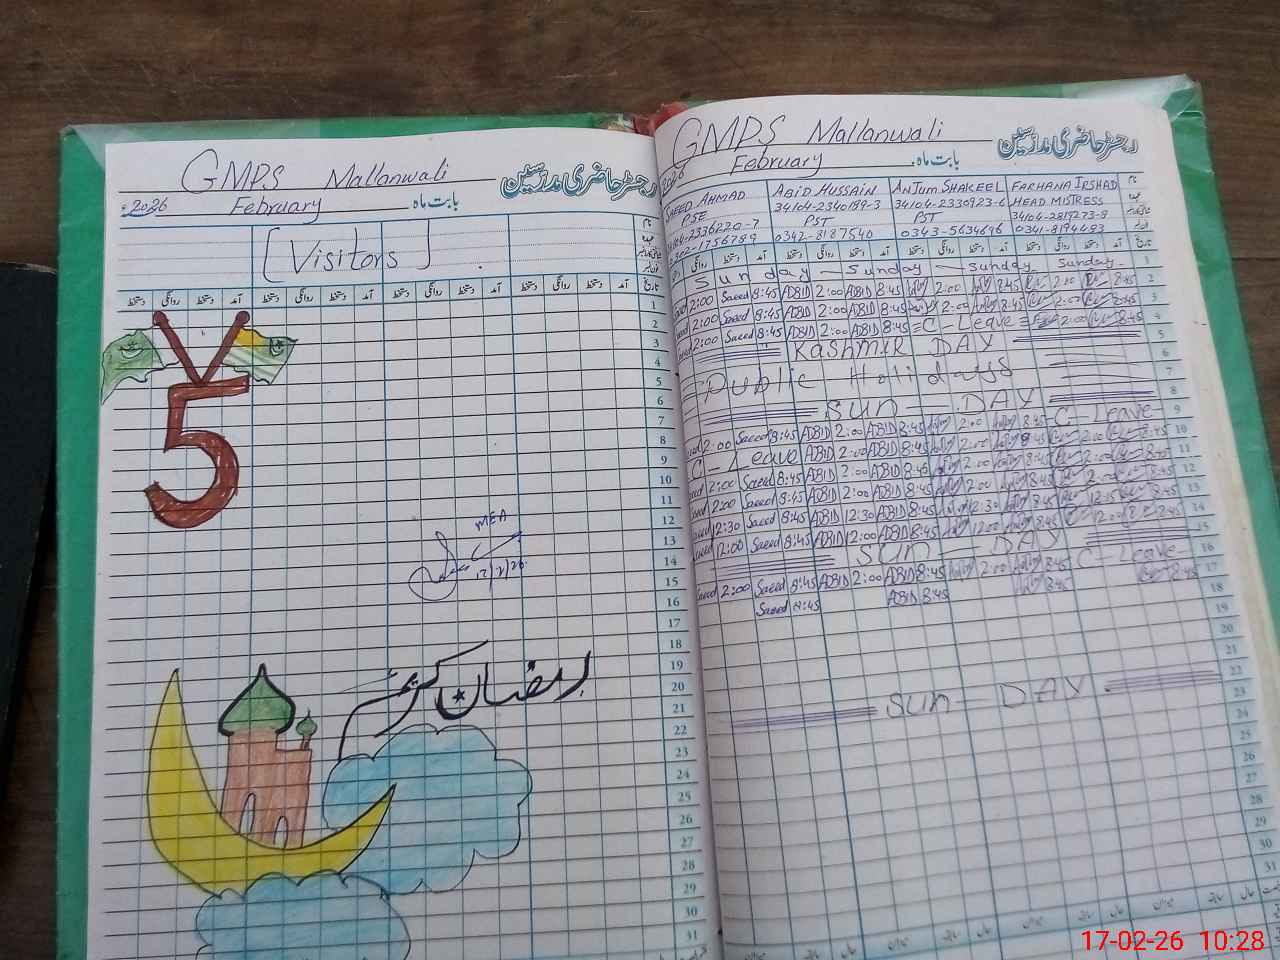 GMPS Mallanwali
رجسٹر حاضری مدرسین
2026 February بابت ماہ
[Visitors]
نام
عہدہ
تاریخ آمد دستخط روانگی دستخط آمد دستخط روانگی دستخط آمد دستخط روانگی دستخط آمد دستخط روانگی دستخط
1
2
3
4
5
6
7
8
9
10
11
12
13
14
15
16
17
18
19
20
21
22
23
24
25
26
27
28
29
30
31
5
MEA
12/2/26
رمضان کریم
GMPS Mallanwali
رجسٹر حاضری مدرسین
2026 February بابت ماہ
SAEED AHMAD ABID HUSSAIN ANJUM SHAKEEL FARHANA IRSHAD نام
PSE 34104-2340189-3 34104-2330923-6 HEAD MISTRESS
34104-2336220-7 PST PST 34104-2819273-8
0302-1756789 0342-8187540 0343-5634696 0341-8194483
تاریخ آمد دستخط روانگی دستخط آمد دستخط روانگی دستخط آمد دستخط روانگی دستخط آمد دستخط روانگی
Sunday — Sunday — Sunday Sunday 1
2:00 Saeed 8:45 ABID 2:00 ABID 8:45 2:00 8:45 2:00 8:45 2
2:00 Saeed 8:45 ABID 2:00 ABID 8:45 2:00 8:45 2:00 8:45 3
2:00 Saeed 8:45 ABID 2:00 ABID 8:45 =C-Leave= 2:00 8:45 4
Kashmir DAY 5
Public Holidays 6
7
SUN — DAY 8
2:00 Saeed 8:45 ABID 2:00 ABID 8:45 2:00 8:45 C-Leave 9
C-Leave ABID 2:00 ABID 8:45 2:00 8:45 2:00 8:45 10
2:00 Saeed 8:45 ABID 2:00 ABID 8:45 2:00 8:45 2:00 8:45 11
2:00 Saeed 8:45 ABID 2:00 ABID 8:45 2:00 8:45 2:00 8:45 12
12:30 Saeed 8:45 ABID 12:30 ABID 8:45 12:30 8:45 12:15 8:45 13
12:00 Saeed 8:45 ABID 12:00 ABID 8:45 12:00 8:45 12:00 8:45 14
SUN — DAY 15
Saeed 2:00 Saeed 8:45 ABID 2:00 ABID 8:45 2:00 8:45 C-Leave 16
Saeed 8:45 ABID 8:45 8:45 8:45 17
18
19
20
21
SUN — DAY 22
23
24
25
26
27
28
29
30
31
17-02-26 10:28